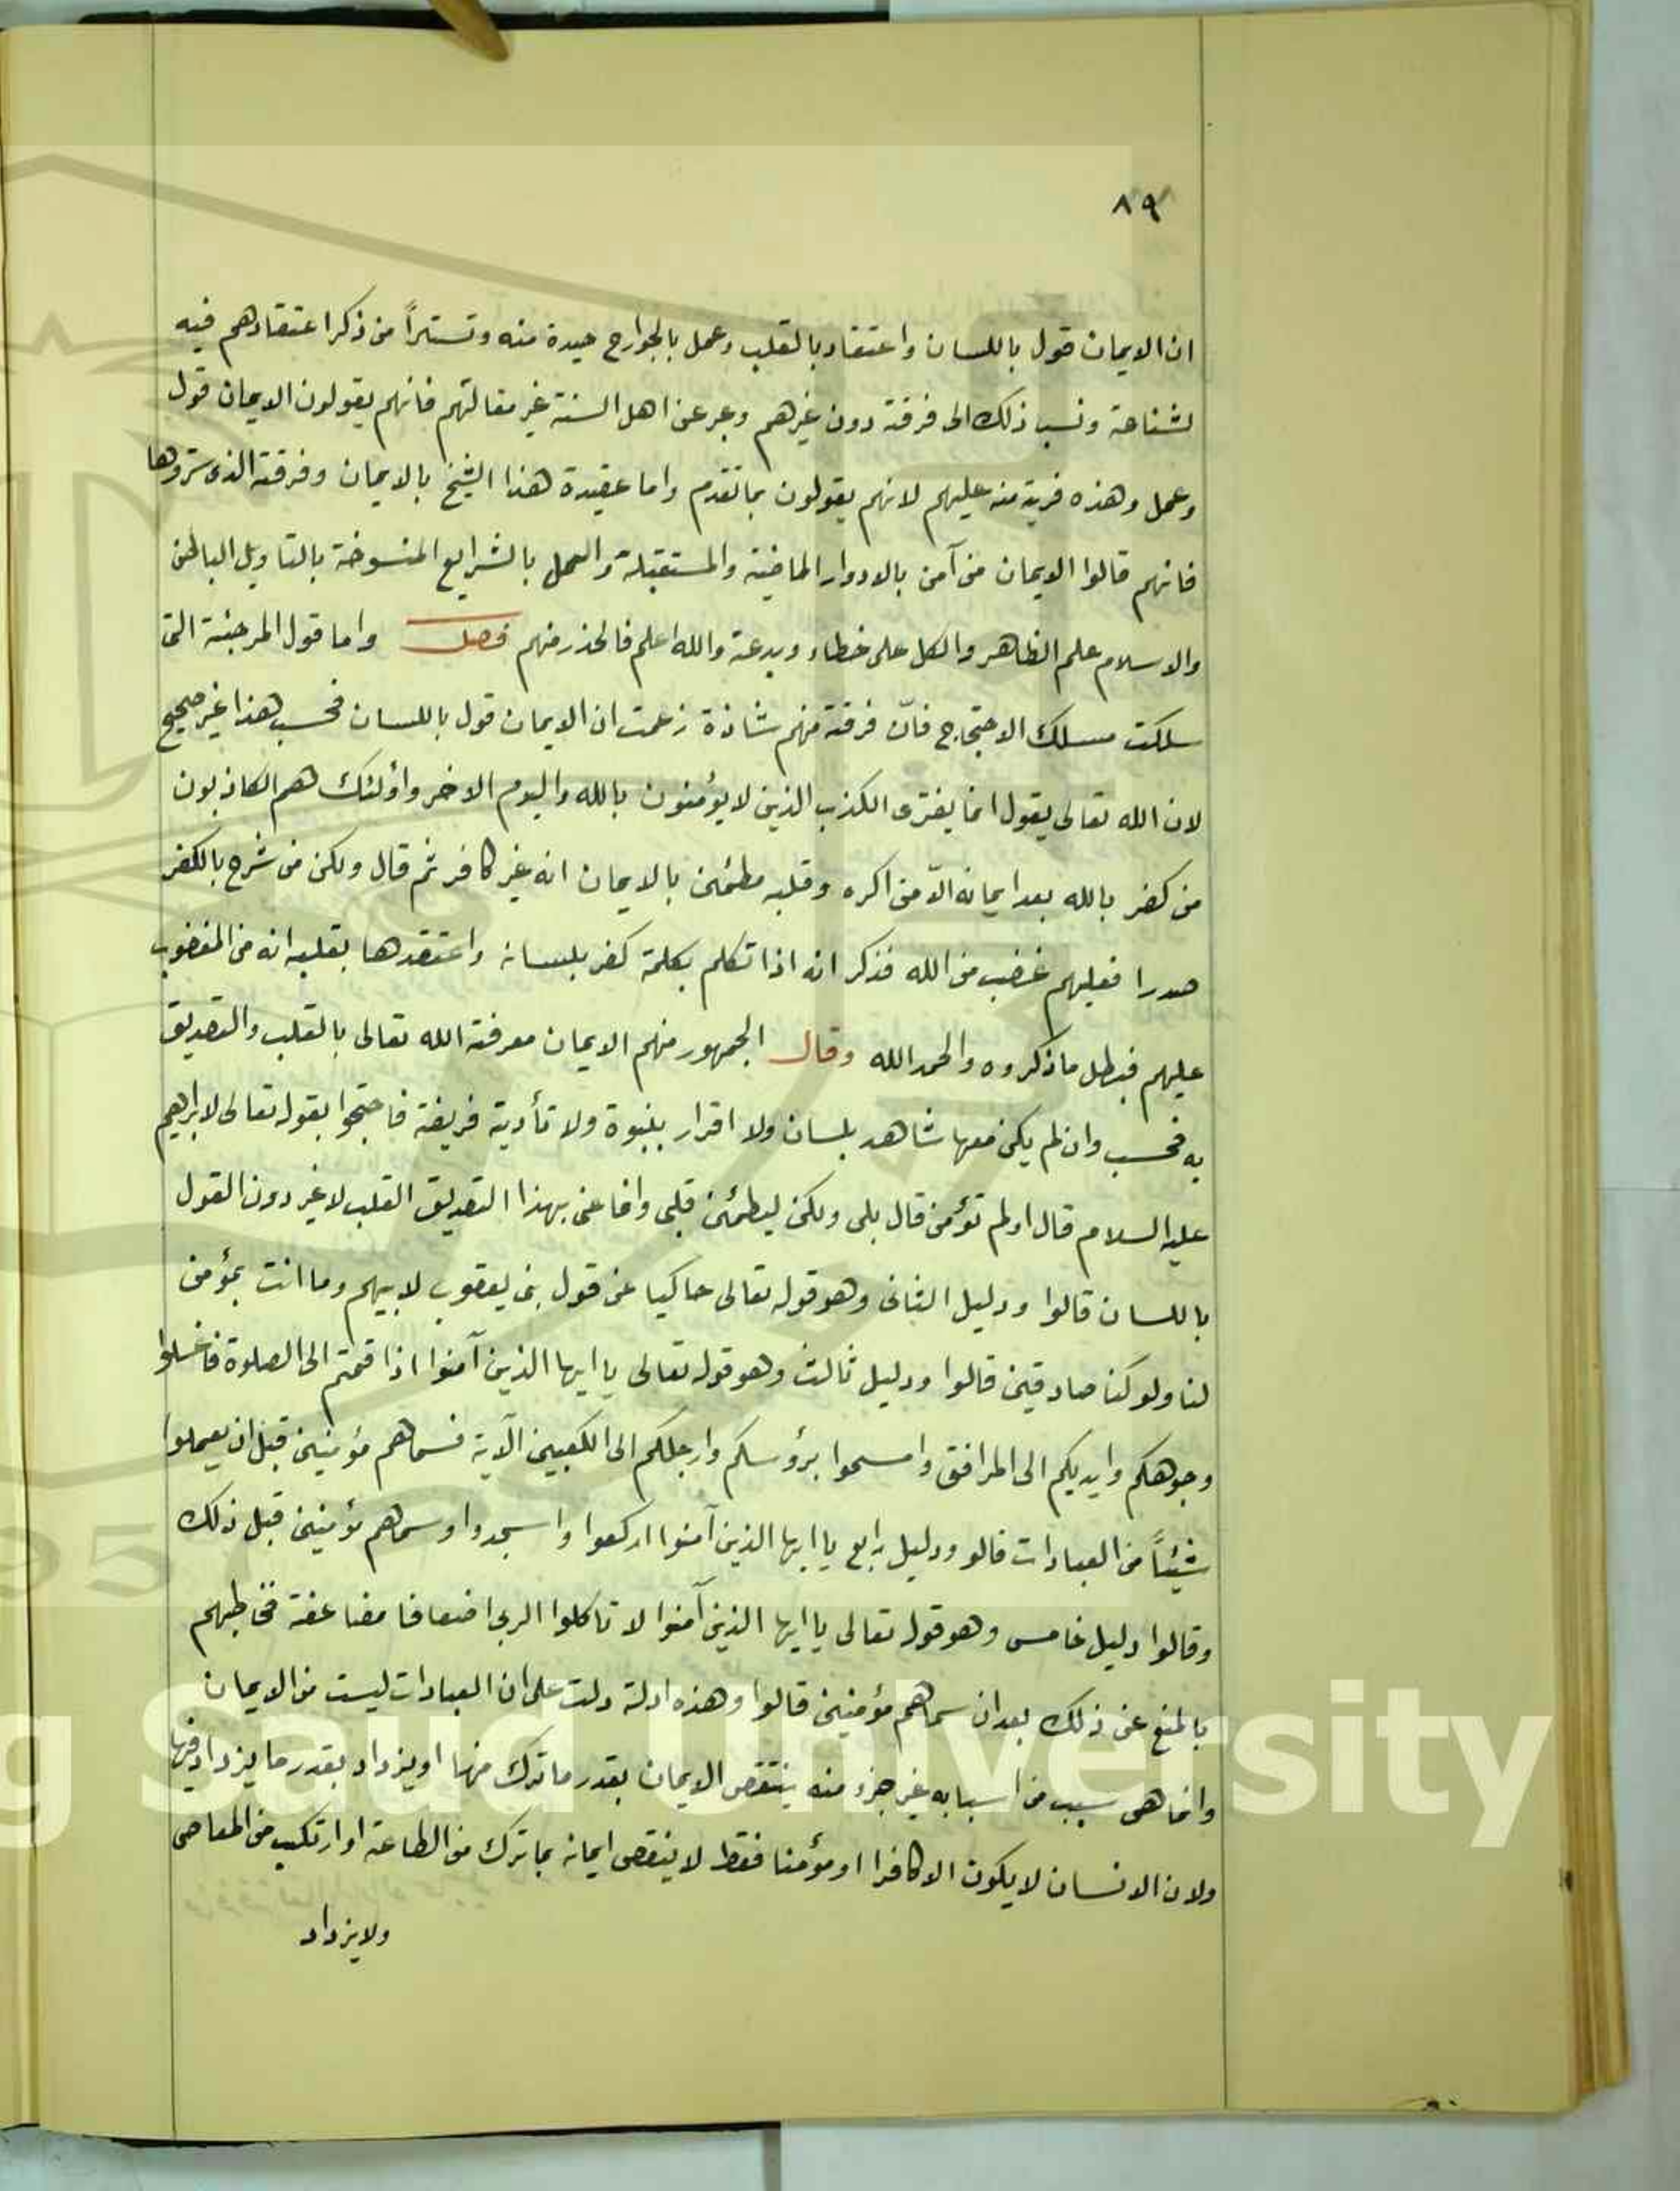 ٨٩
ان الايمان قول باللسان واعتقاد بالقلب وعمل بالجوارح حيدة منه وتستراً من ذكر اعتقادهم فيه
لشناعة ونسب ذلك الى فرقة دون غيرهم وعبر عن اهل السنة غير مقالتهم فانهم يقولون الايمان قول
وعمل وهذه فرية منه عليهم لانهم يقولون بما تقدم واما عقيدة هذا الشيخ بالايمان وفرقته الذى ستروها
فانهم قالوا الايمان من آمن بالادوار الماضية والمستقبلة والعمل بالشرايع المنسوخة بالتاويل الباطن
والاسلام علم الظاهر والكل على خطاء وبدعة والله اعلم فالحذر منهم فصل واما قول المرجئة التى
سلكت مسلك الاحتجاج فانّ فرقة منهم شاذة زعمت ان الايمان قول باللسان فحسب هذا غير صحيح
لان الله تعالى يقول انما يفترى الكذب الذين لا يؤمنون بالله واليوم الاخر واؤلئك هم الكاذبون
من كفر بالله بعد ايمانه الّا من اكره وقلبه مطمئن بالايمان انه غير كافر ثم قال ولكن من شرح بالكفر
صدرا فعليهم غضب من الله فذكر انه اذا تكلم بكلمة كفر بلسانه واعتقدها بقلبه انه من المغضوب
عليهم فبطل ما ذكروه والحمد الله وقال الجمهور منهم الايمان معرفة الله تعالى بالقلب والتصديق
به فحسب وان لم يكن معها شاهد بلسان ولا اقرار بنبوة ولا تأدية فريضة فاحتجوا بقوله تعالى لابراهيم
عليه السلام قال اولم تؤمن قال بلى ولكن ليطمئن قلبى وانما عنى بهذا التصديق القلب لا غير دون القول
باللسان قالوا ودليل الثانى وهو قوله تعالى حاكيا عن قول بنى يعقوب لابيهم وما انت بمؤمن
لنا ولو كنا صادقين قالوا ودليل ثالث وهو قوله تعالى يا ايها الذين آمنوا اذا قمتم الى الصلوة فاغسلوا
وجوهكم وايديكم الى المرافق وامسحوا برؤسكم وارجلكم الى الكعبين الآية فسماهم مؤمنين قبل ان يعملوا
شيئاً من العبادات قالو ودليل رابع يا ايها الذين آمنوا اركعوا واسجدوا وسماهم مؤمنين قبل ذلك
وقالوا دليل خامس وهو قول تعالى يا ايها الذين آمنوا لا تاكلوا الربى اضعافا مضاعفة فخاطبهم
بالمنع عن ذلك بعد ان سماهم مؤمنين قالوا وهذه ادلة دلت على ان العبادات ليست من الايمان
وانما هى سبب من اسبابه غير جزء منه ينتقص الايمان بقدر ما ترك منها او يزداد بقدر ما يزداد فيها
ولان الانسان لا يكون الا كافرا او مؤمنا فقط لا ينقص ايمانه بما ترك من الطاعة او ارتكب من المعاصى
ولا يزداد
g Saud University
957